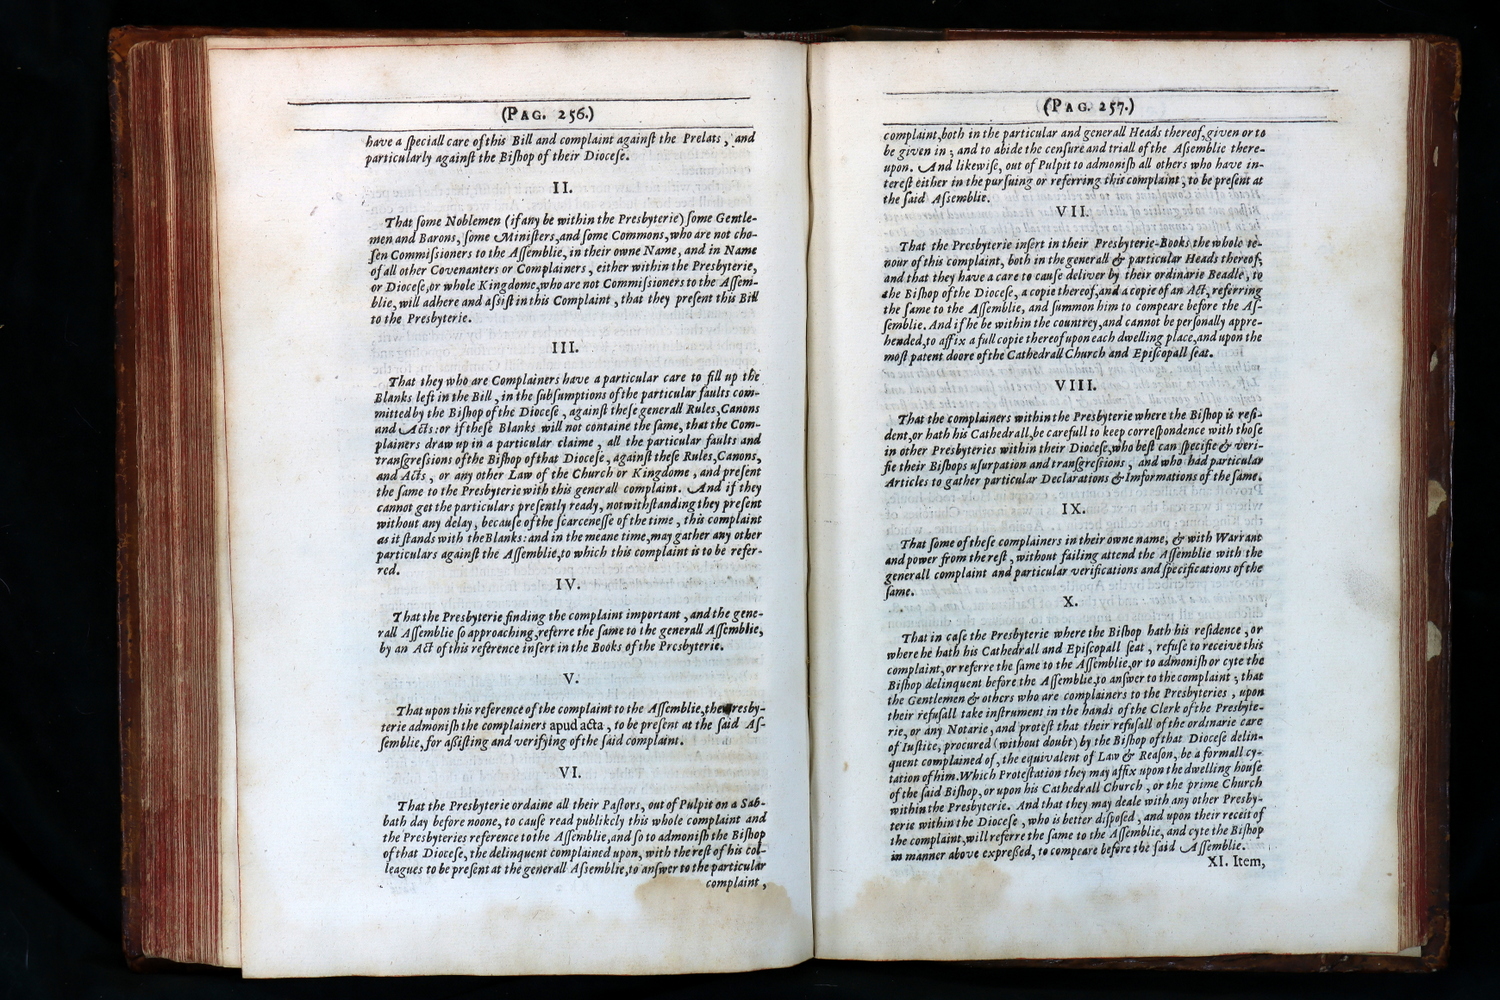 (PAG. 256.)
have a ſpeciall care of this Bill and complaint againſt the Prelats, and
particularly againſt the Biſhop of their Dioceſe.
II.
That ſome Noblemen (if any be within the Presbyterie) ſome Gentle-
men and Barons, ſome Miniſters, and ſome Commons, who are not cho-
ſen Commiſsioners to the Aſſemblie, in their owne Name, and in Name
of all other Covenanters or Complainers, either within the Presbyterie,
or Dioceſe, or whole Kingdome, who are not Commiſsioners to the Aſſem-
blie, will adhere and aſsiſt in this Complaint, that they preſent this Bill
to the Presbyterie.
III.
That they who are Complainers have a particular care to fill up the
Blanks left in the Bill, in the ſubſumptions of the particular faults com-
mitted by the Biſhop of the Dioceſe, againſt theſe generall Rules, Canons
and Acts: or if theſe Blanks will not containe the ſame, that the Com-
plainers draw up in a particular claime, all the particular faults and
tranſgreſsions of the Biſhop of that Dioceſe, againſt theſe Rules, Canons,
and Acts, or any other Law of the Church or Kingdome, and preſent
the ſame to the Presbyterie with this generall complaint. And if they
cannot get the particulars preſently ready, notwithſtanding they preſent
without any delay, becauſe of the ſcarceneſſe of the time, this complaint
as it ſtands with the Blanks: and in the meane time, may gather any other
particulars againſt the Aſſemblie, to which this complaint is to be refer-
red.
IV.
That the Presbyterie finding the complaint important, and the gene-
rall Aſſemblie ſo approaching, referre the ſame to the generall Aſſemblie,
by an Act of this reference inſert in the Books of the Presbyterie.
V.
That upon this reference of the complaint to the Aſſemblie, the Presby-
terie admoniſh the complainers apud acta, to be preſent at the ſaid Aſ-
ſemblie, for aßiſting and verifying of the ſaid complaint.
VI.
That the Presbyterie ordaine all their Paſtors, out of Pulpit on a Sab-
bath day before noone, to cauſe read publikely this whole complaint and
the Presbyteries reference to the Aſſemblie, and ſo to admoniſh the Biſhop
of that Dioceſe, the delinquent complained upon, with the reſt of his col-
leagues to be preſent at the generall Aſsemblie, to anſwer to the particular
complaint,
(PAG. 257.)
complaint, both in the particular and generall Heads thereof, given or to
be given in; and to abide the cenſure and triall of the Aſſemblie there-
upon. And likewiſe, out of Pulpit to admoniſh all others who have in-
tereſt either in the purſuing or referring this complaint, to be preſent at
the ſaid Aſsemblie.
VII.
That the Presbyterie inſert in their Presbyterie-Books the whole te-
nour of this complaint, both in the generall & particular Heads thereof;
and that they have a care to cauſe deliver by their ordinarie Beadle, to
the Biſhop of the Dioceſe, a copie thereof, and a copie of an Act, referring
the ſame to the Aſſemblie, and ſummon him to compeare before the Aſ-
ſemblie. And if he be within the countrey, and cannot be perſonally appre-
hended, to affix a full copie thereof upon each dwelling place, and upon the
moſt patent doore of the Cathedrall Church and Epiſcopall ſeat.
VIII.
That the complainers within the Presbyterie where the Biſhop is reſi-
dent, or hath his Cathedrall, be carefull to keep correſpondence with thoſe
in other Presbyteries within their Dioceſe, who beſt can ſpecifie & veri-
fie their Biſhops uſurpation and tranſgreſsions, and who had particular
Articles to gather particular Declarations & Imformations of the ſame.
IX.
That ſome of theſe complainers in their owne name, & with Warrant
and power from the reſt, without failing attend the Aſſemblie with the
generall complaint and particular verifications and ſpecifications of the
ſame.
X.
That in caſe the Presbyterie where the Biſhop hath his reſidence, or
where he hath his Cathedrall and Epiſcopall ſeat, refuſe to receive this
complaint, or referre the ſame to the Aſſemblie, or to admoniſh or cyte the
Biſhop delinquent before the Aſſemblie, to anſwer to the complaint; that
the Gentlemen & others who are complainers to the Presbyteries, upon
their refuſall take inſtrument in the hands of the Clerk of the Presbyte-
rie, or any Notarie, and proteſt that their refuſall of the ordinarie care
of Iuſtice, procured (without doubt) by the Biſhop of that Dioceſe delin-
quent complained of, the equivalent of Law & Reaſon, be a formall cy-
tation of him. Which Proteſtation they may affix upon the dwelling houſe
of the ſaid Biſhop, or upon his Cathedrall Church, or the prime Church
within the Presbyterie. And that they may deale with any other Presby-
terie within the Dioceſe, who is better diſpoſed, and upon their receit of
the complaint, will referre the ſame to the Aſſemblie, and cyte the Biſhop
in manner above expreßed, to compeare before the ſaid Aſſemblie.
XI. Item,